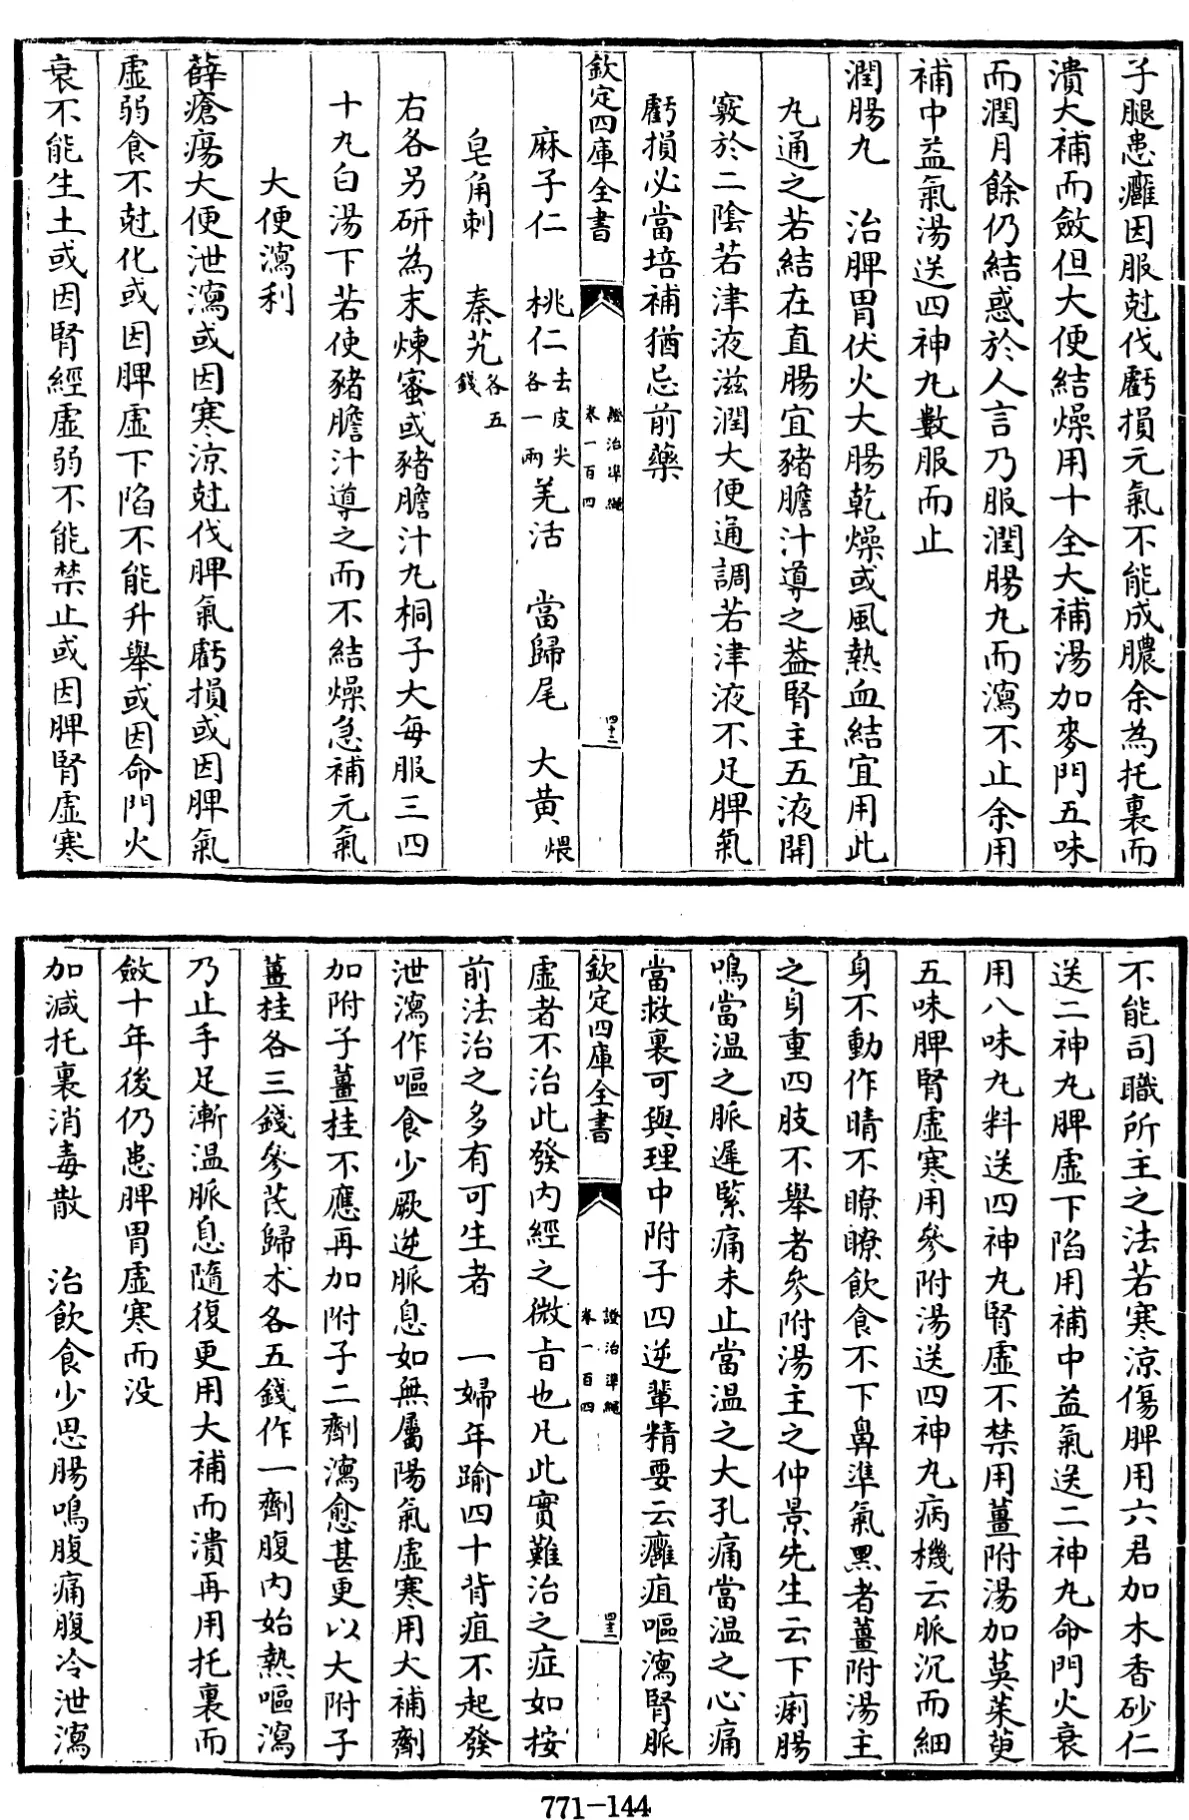 子腿患癰因服尅伐虧損元氣不能成膿余為托裏而
潰大補而斂但大便結燥用十全大補湯加麥門五味
而潤月餘仍結惑於人言乃服潤腸丸而瀉不止余用
補中益氣湯送四神丸數服而止
潤腸丸　治脾胃伏火大腸乾燥或風熱血結宜用此
丸通之若結在直腸宜豬膽汁導之葢腎主五液開
竅於二陰若津液滋潤大便通調若津液不足脾氣
虧損必當培補猶忌前藥
欽定四庫全書　證治準繩卷一百四　四十二
麻子仁　桃仁去皮尖各一兩　羌活　當歸尾　大黃煨
皂角刺　秦艽各五錢
右各另研為末煉蜜或豬膽汁丸桐子大每服三四
十丸白湯下若使豬膽汁導之而不結燥急補元氣
大便瀉利
薛瘡瘍大便泄瀉或因寒涼尅伐脾氣虧損或因脾氣
虛弱食不尅化或因脾虛下陷不能升舉或因命門火
衰不能生土或因腎經虛弱不能禁止或因脾腎虛寒
不能司職所主之法若寒涼傷脾用六君加木香砂仁
送二神丸脾虛下陷用補中益氣送二神丸命門火衰
用八味丸料送四神丸腎虛不禁用薑附湯加茱萸
五味脾腎虛寒用參附湯送四神丸病機云脈沉而細
身不動作睛不瞭瞭飲食不下鼻準氣黑者薑附湯主
之身重四肢不舉者參附湯主之仲景先生云下痢腸
鳴當溫之脈遲緊痛未止當溫之大孔痛當溫之心痛
當救裏可與理中附子四逆輩精要云癰疽嘔瀉腎脈
欽定四庫全書　證治準繩卷一百四　四十三
虛者不治此發內經之微旨也凡此實難治之症如按
前法治之多有可生者　一婦年踰四十背疽不起發
泄瀉作嘔食少厥逆脈息如無屬陽氣虛寒用大補劑
加附子薑桂不應再加附子二劑瀉愈甚更以大附子
薑桂各三錢參芪歸朮各五錢作一劑腹內始熱嘔瀉
乃止手足漸溫脈息隨復更用大補而潰再用托裏而
斂十年後仍患脾胃虛寒而沒
加減托裏消毒散　治飲食少思腸鳴腹痛腹冷泄瀉
771-144